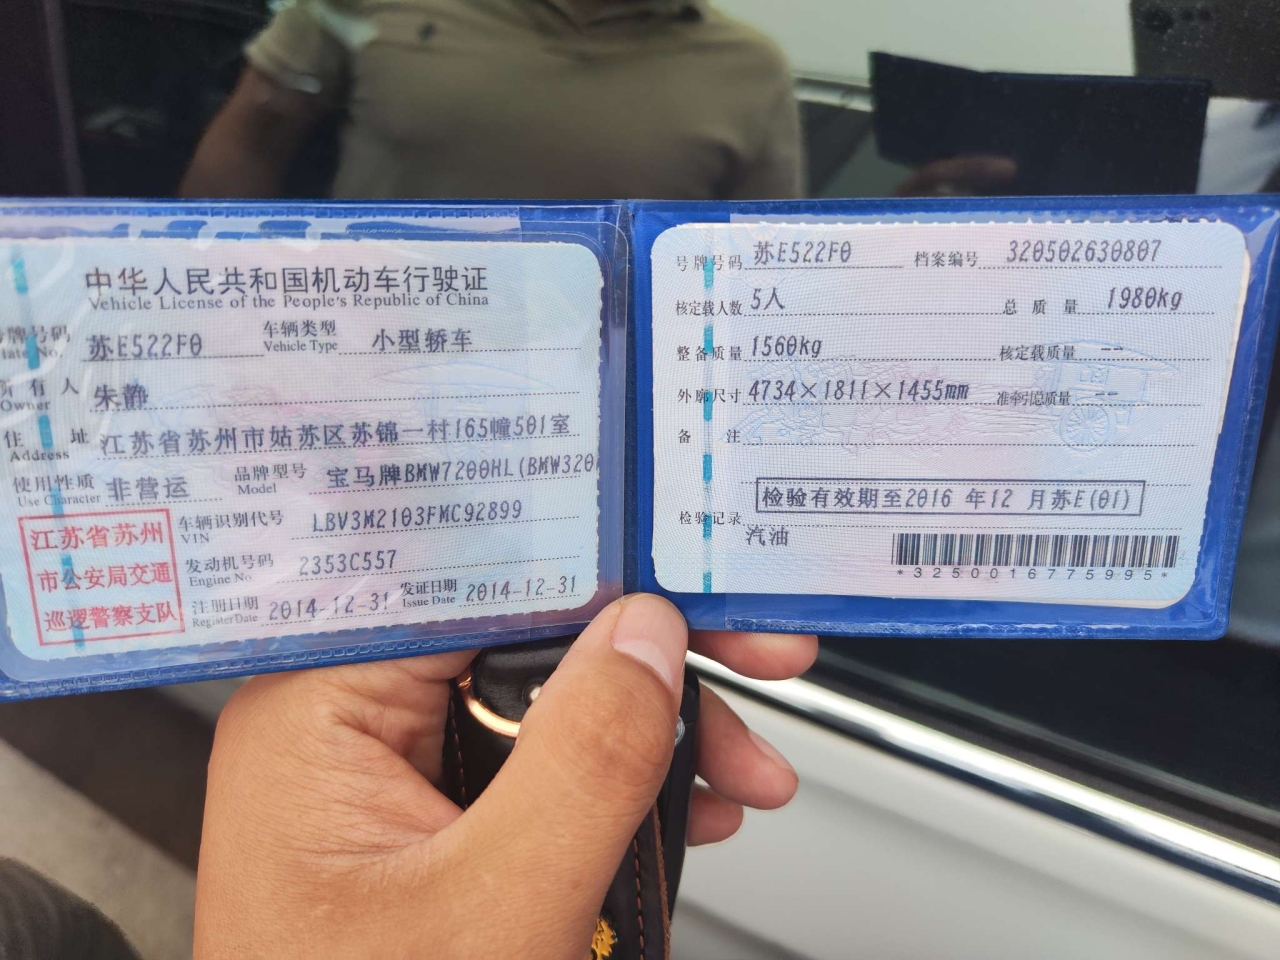 中华人民共和国机动车行驶证
Vehicle License of the People's Republic of China
号牌号码 苏E522F0 车辆类型 小型轿车
Plate No. Vehicle Type
所有人 朱静
Owner
住址 江苏省苏州市姑苏区苏锦一村165幢501室
Address
使用性质 非营运 品牌型号 宝马牌BMW7200HL(BMW320
Use Character Model
车辆识别代号 LBV3M2103FMC92899
VIN
发动机号码 2353C557
Engine No.
注册日期 2014-12-31 发证日期 2014-12-31
Register Date Issue Date
江苏省苏州
市公安局交通
巡逻警察支队
号牌号码 苏E522F0 档案编号 320502630807
核定载人数 5人 总质量 1980kg
整备质量 1560kg 核定载质量 --
外廓尺寸 4734×1811×1455mm 准牵引总质量 --
备注
检验有效期至2016 年12 月苏E(01)
检验记录
汽油
*3250016775995*